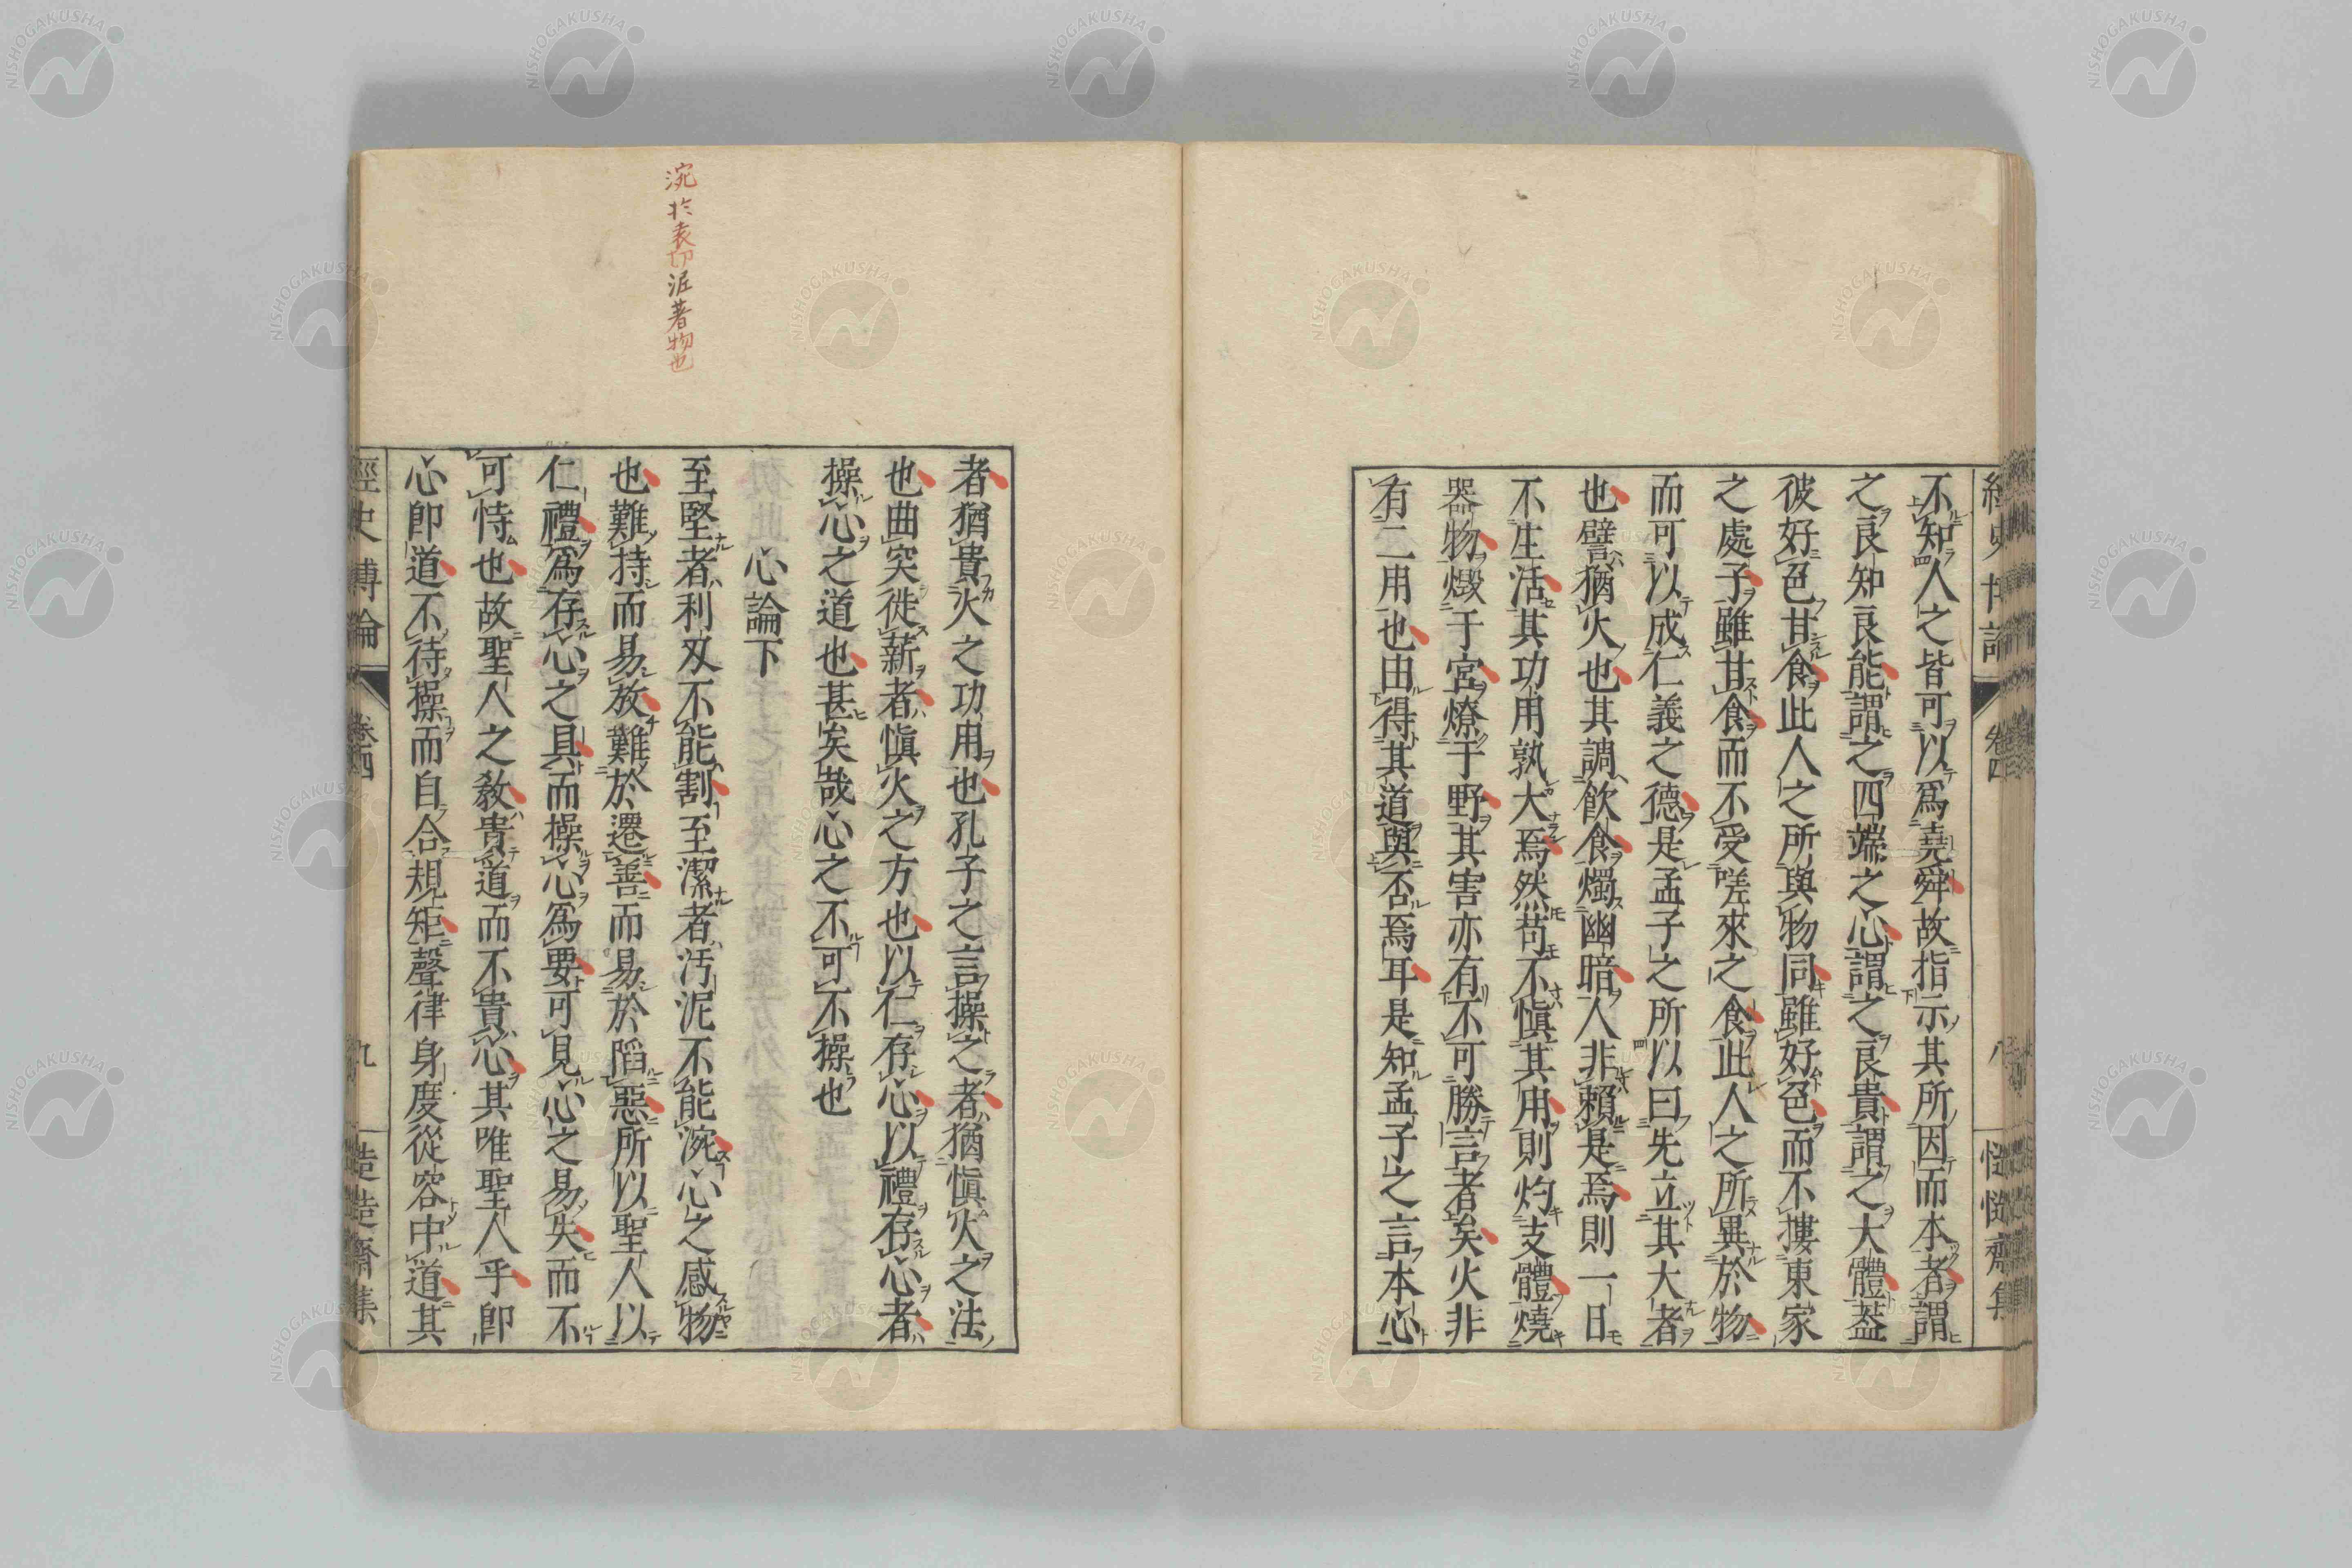 不知人之皆可以爲堯舜故指示其所因而本者謂
之良知良能謂之四端之心謂之良貴謂之大體葢
彼好色甘食此人之所與物同雖好色而不摟東家
之處子雖甘食而不受嗟來之食此人之所異於物
而可以成仁義之德是孟子之所以曰先立其大者
也譬猶火也其調飮食燭幽暗人非賴是焉則一日
不生活其功用孰大焉然苟不愼其用則灼支體燒
器物燬于宮燎于野其害亦有不可勝言者矣火非
有二用也由得其道與否焉耳是知孟子之言本心
者猶貴火之功用也孔子之言操之者猶愼火之法
也曲突徙薪者愼火之方也以仁存心以禮存心者
操心之道也甚矣哉心之不可不操也
心論下
至堅者利刄不能割至潔者汚泥不能涴心之感物
也難持而易放難於遷善而易於陷惡所以聖人以
仁禮爲存心之具而操心爲要可見心之易失而不
可恃也故聖人之教貴道而不貴心其唯聖人乎卽
心卽道不待操而自合規矩聲律身度從容中道其
經史博論
卷四
九
造造齋集
涴於袁切泥著物也